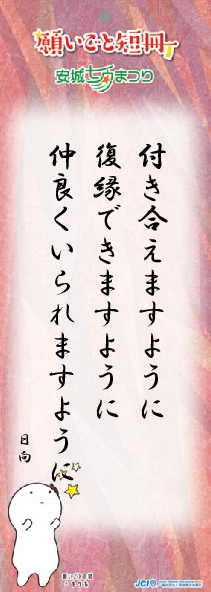 願いごと短冊
安城七夕まつり
付き合えますように
復縁できますように
仲良くいられますように
日向
JCI